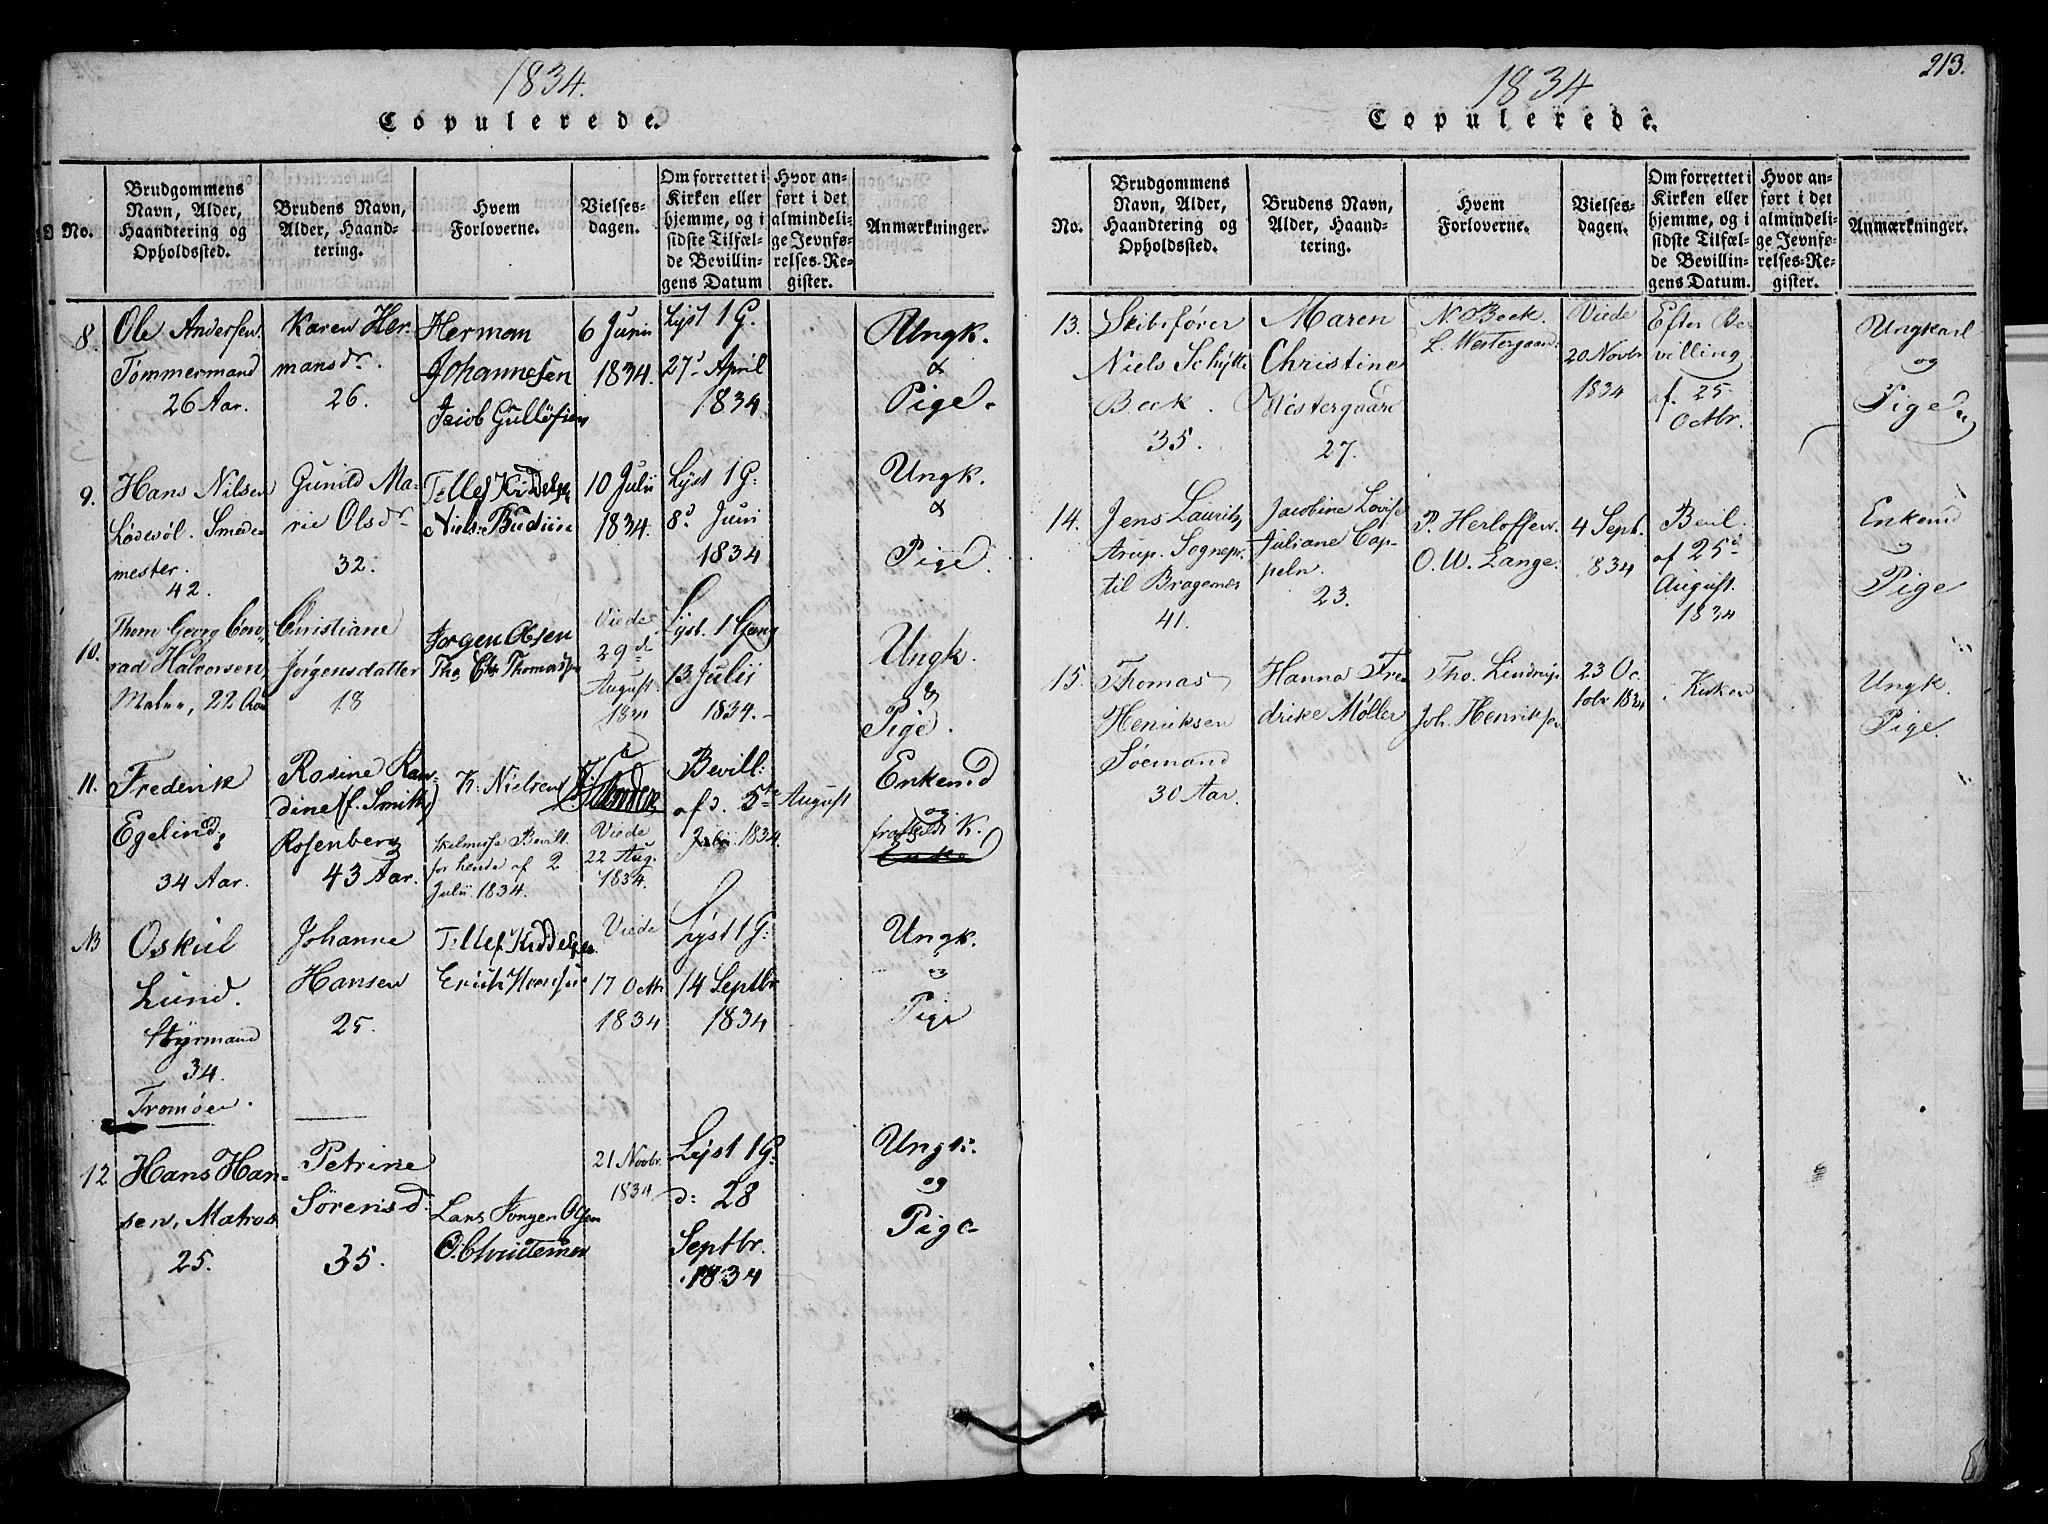 1834.
Copulerede.
No.
Brudgommens
Navn, Alder,
Haandtering og
Opholdssted.
Brudens Navn,
Alder, Haand-
tering.
Hvem
Forloverne.
Vielses-
dagen.
Om forrettet i
Kirken eller
hjemme, og i
sidste Tilfæl-
de Bevillin-
gens Datum
Hvor an-
ført i det
almindeli-
ge Jevnfø-
relses-Re-
gister.
Anmærkninger.
8.
Ole Andersen
Tømmermand
26 Aar.
Karen Her-
mansdr.
26.
Herman
Johannesen
Jacob Gulløfsen
6 Juni
1834.
Lyst 1 G.
27d April
1834
Ungk.
&
Pige.
9.
Hans Nilsen
Lødesøl. Smede-
mester.
42.
Gunild Ma-
rie Olsdr
32.
Tellef Kiddelsen
Niels
10 Julii
1834.
Lyst 1 G:
8d Juni
1834
Ungk.
&
Pige.
10.
Thom Georg Con-
rad Halvorsen,
22 Aar
Christiane
Jørgensdatter
18
Jørgen Olsen
Tho Chr Thomassen
Viede
29d
August
1834
Lyst. 1 Gang
13 Julii
1834.
Ungk.
&
Pige.
11.
Frederik
Egelind
34 Aar.
Rasine Ran-
dine (f. Smith)
Rosenberg
43 Aar.
K. Nielsen
Skilmisse Bevill.
for hende af 2
Julii 1834.
Viede
22 Aug.
1834.
Bevill:
af d. 5te August
Julii 1834.
Enkemd
og
fraskildt K.
Enke
NB
Oskul
Lund.
Styrmand
34.
Tromøe.
Johanne
Hansen
25.
Tellef Kiddelsen
Erich
Viede
17 Octb
1834
Lyst 1 G:
14 Septbr
1834
Ungk.
og
Pige
12
Hans Han-
sen, Matros
25.
Petrine
Sörensd.
35.
Lars Jörgen Olsen
O. Christensen
21 Novbr.
1834.
Lyst 1 G.
d: 28
Septbr.
1834
Ungk.
og
Pige
1834
213.
Copulerede.
No.
Brudgommens
Navn, Alder,
Haandtering og
Opholdssted.
Brudens Navn,
Alder, Haand-
tering.
Hvem
Forloverne.
Vielses-
dagen.
Om forrettet i
Kirken eller
hjemme, og i
sidste Tilfæl-
de Bevillin-
gens Datum.
Hvor an-
ført i det
almindeli-
ge Jevnfø-
relses-Re-
gister.
Anmærkninger.
13.
Skibsfører
Niels Schytte
Beck.
35.
Maren
Christine
Westergaard
27.
N Beck.
L. Westergaard
Viede
20 Novbr
1834
Efter Be
villing
af. 25
Octbr.
Ungkarl
og
Pige
14.
Jens Lauritz
Arup. Sognepr.
til Bragernes
41.
Jacobine Lovise
Juliane Cap-
peln.
23.
P. Herloffsen
O. W. Lange.
4 Septb.
1834
Bevl.
af 25d
August.
1834
Enkemd
og
Pige
15.
Thomas
Henriksen
Söemand
30 Aar.
Hanna Fre
drike Møller
Tho. Lindrup
Joh. Henriksen
23 Oc
tobr 1834
i Kirken
Ungk.
Pige.